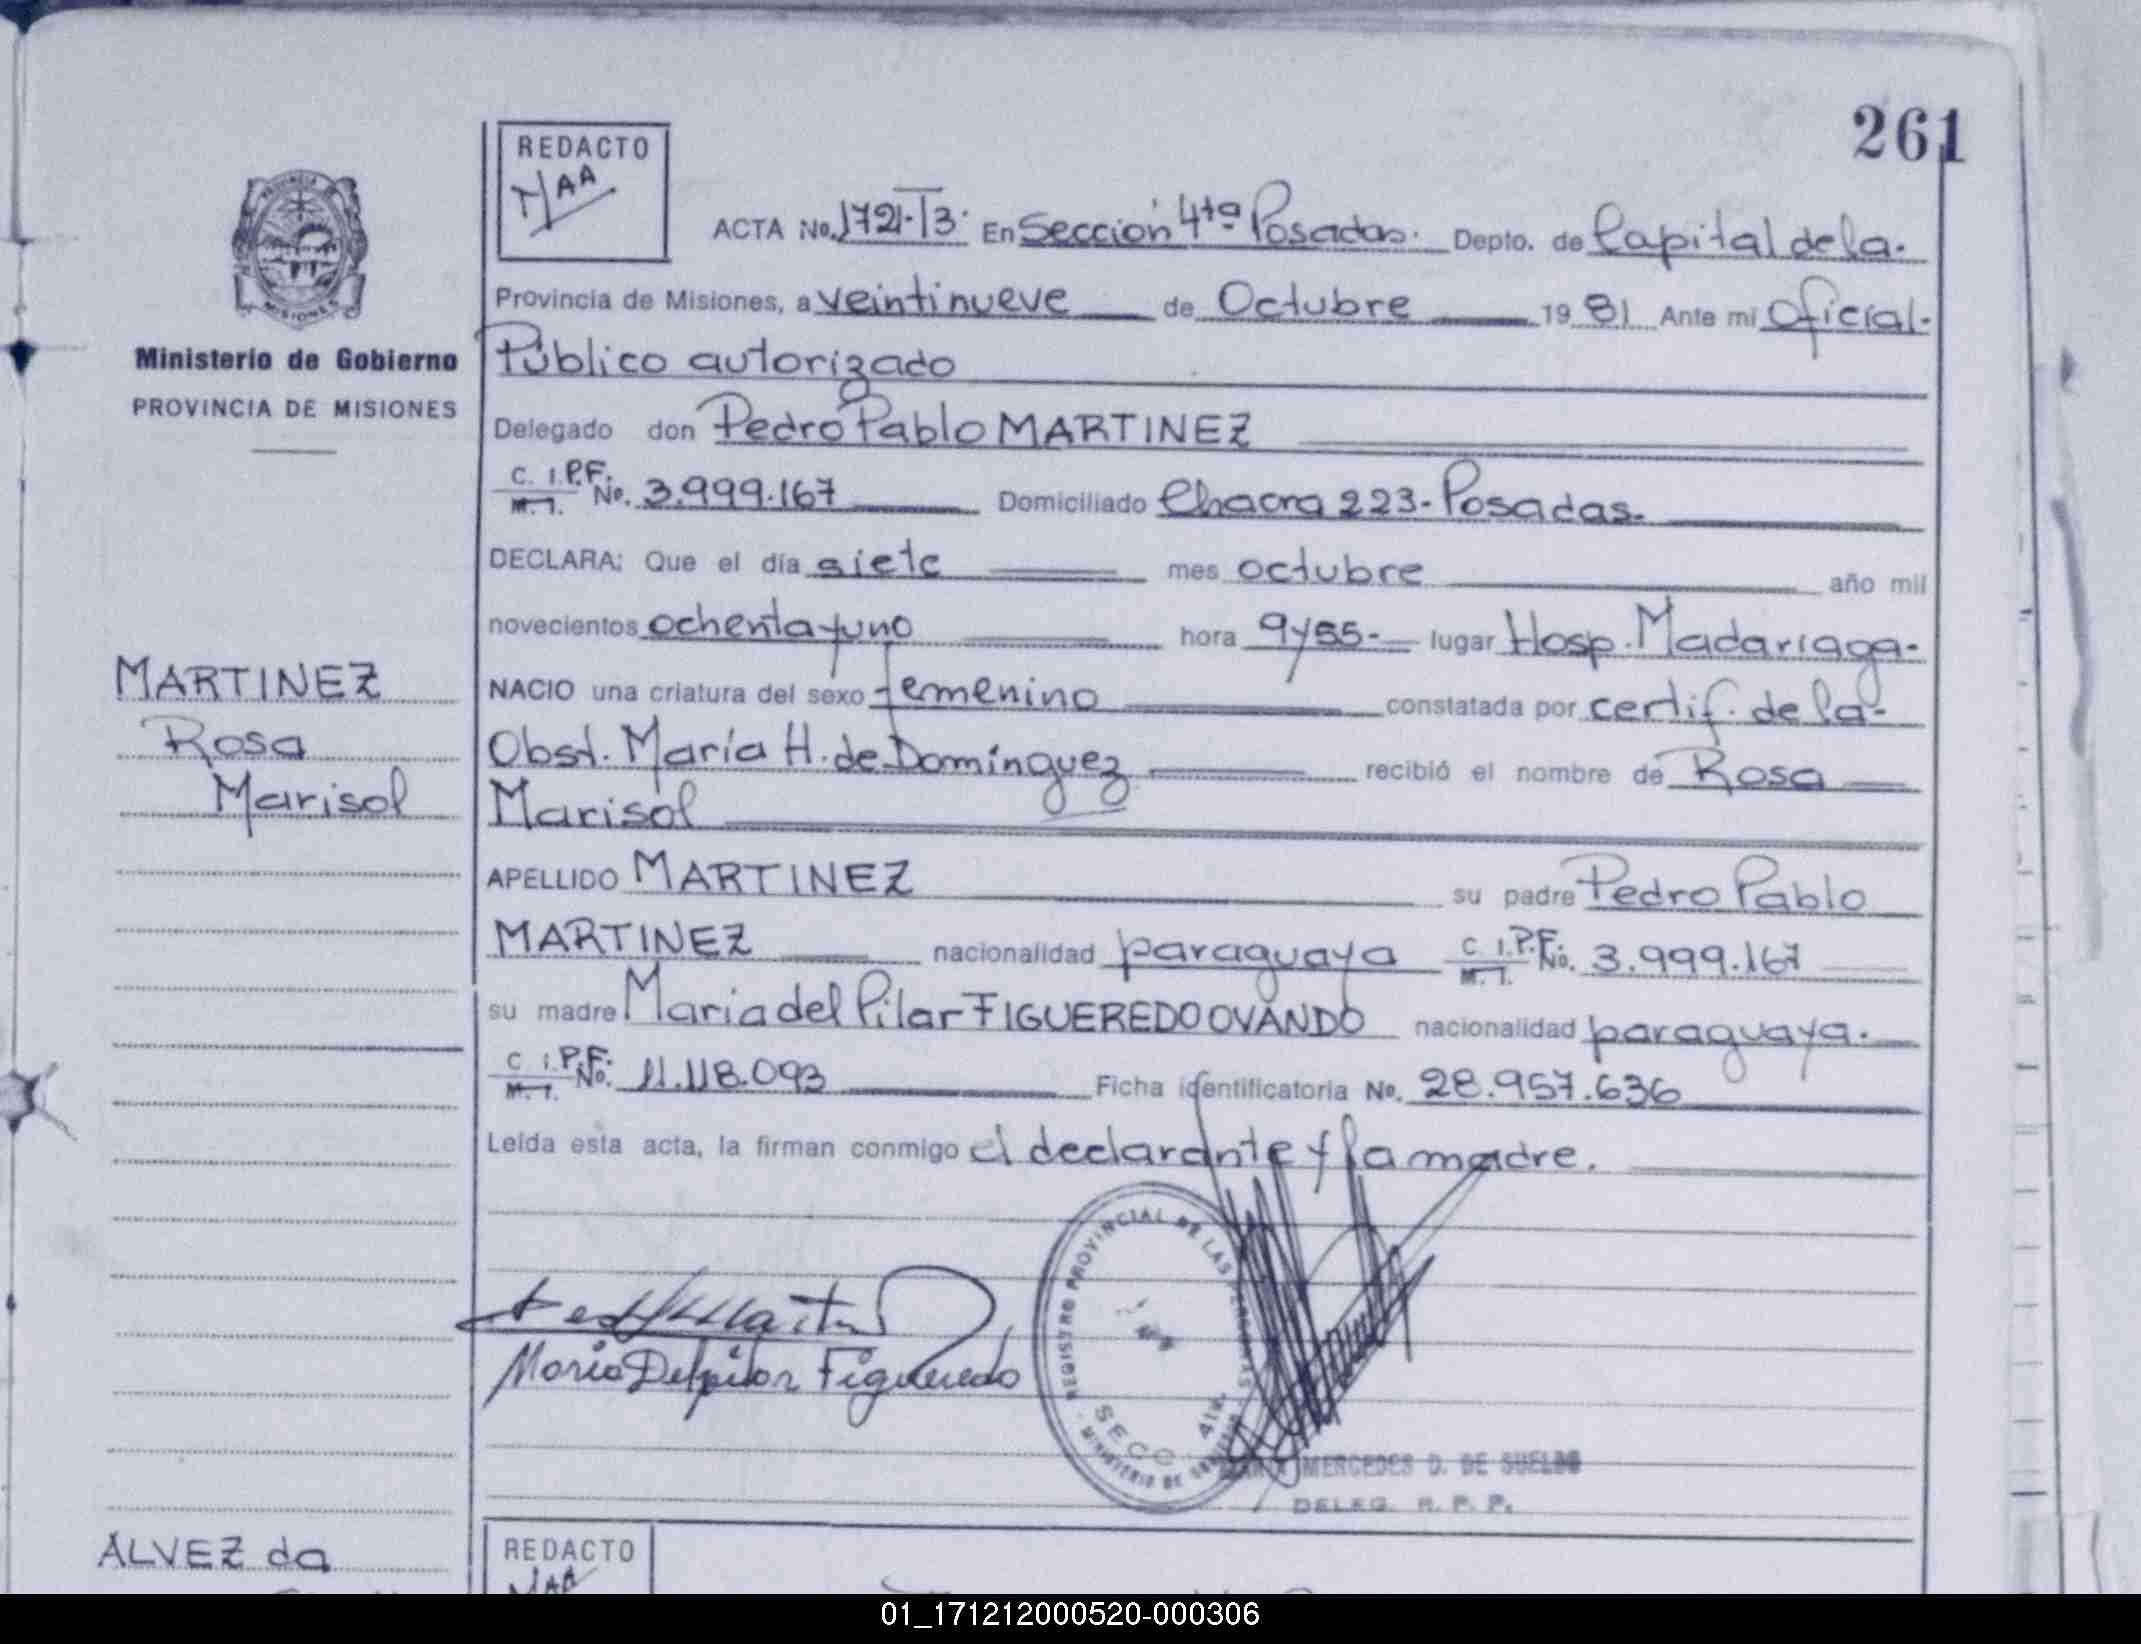 261
REDACTO
ACTA No. 1721-T3. En Sección 4ta Posadas. Depto. de Capital de la.
Provincia de Misiones, a veintinueve de Octubre 1981 Ante mi Oficial.
Público autorizado
Ministerio de Gobierno
PROVINCIA DE MISIONES
Delegado don Pedro Pablo MARTINEZ
C. I.P.F. M.I. No. 3.999.167 Domiciliado Chacra 223-Posadas.
DECLARA: Que el día siete mes octubre año mil
novecientos ochenta y uno hora 9y55- lugar Hosp. Madariaga-
MARTINEZ
Rosa
Marisol
NACIO una criatura del sexo femenino constatada por certif. de la-
Obst. María H. de Domínguez recibió el nombre de Rosa
Marisol
APELLIDO MARTINEZ su padre Pedro Pablo
MARTINEZ nacionalidad paraguaya C I.P.F. M.I. No. 3.999.167
su madre María del Pilar FIGUEREDO OVANDO nacionalidad paraguaya.
C I.P.F. M.I. No. 11.118.093 Ficha identificatoria No. 28.957.636
Leída esta acta, la firman conmigo el declarante y la madre.
Maria Delpilar Figueredo
REGISTRO PROVINCIAL DE LAS PERSONAS
SECC. 4ta.
MINISTERIO DE GOBIERNO
MERCEDES D. DE SUELDO
DELEG. R. P. P.
ALVEZ da
REDACTO
01_171212000520-000306